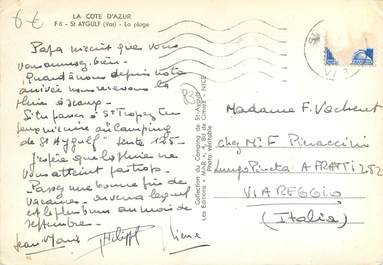 6€
LA COTE D'AZUR
F 8 - St AYGULF (Var) - La plage
Papa m'écrit que vous
vous amusez bien.
Quand à nous depuis notre
arrivée nous recevons la
pluie
Si tu passes à St Tropez,
au Camping
de St Aygulf" tente 125 -
J'espère que la pluie ne
vous atteint pas trop.
Passez une bonne fin de
vacances. on verra
et les plus au mois de
septembre.
Jean Marie Philippe
Collection du Camping de St-Aygulf
Les Editions "MAR", 4, Bd de Cimiez - NICE
Photo véritable
Madame F. Vachent
chez Mr F Pinaccini
Lungo Pineta A FRATTI 252
VIAREGGIO
(Italia)